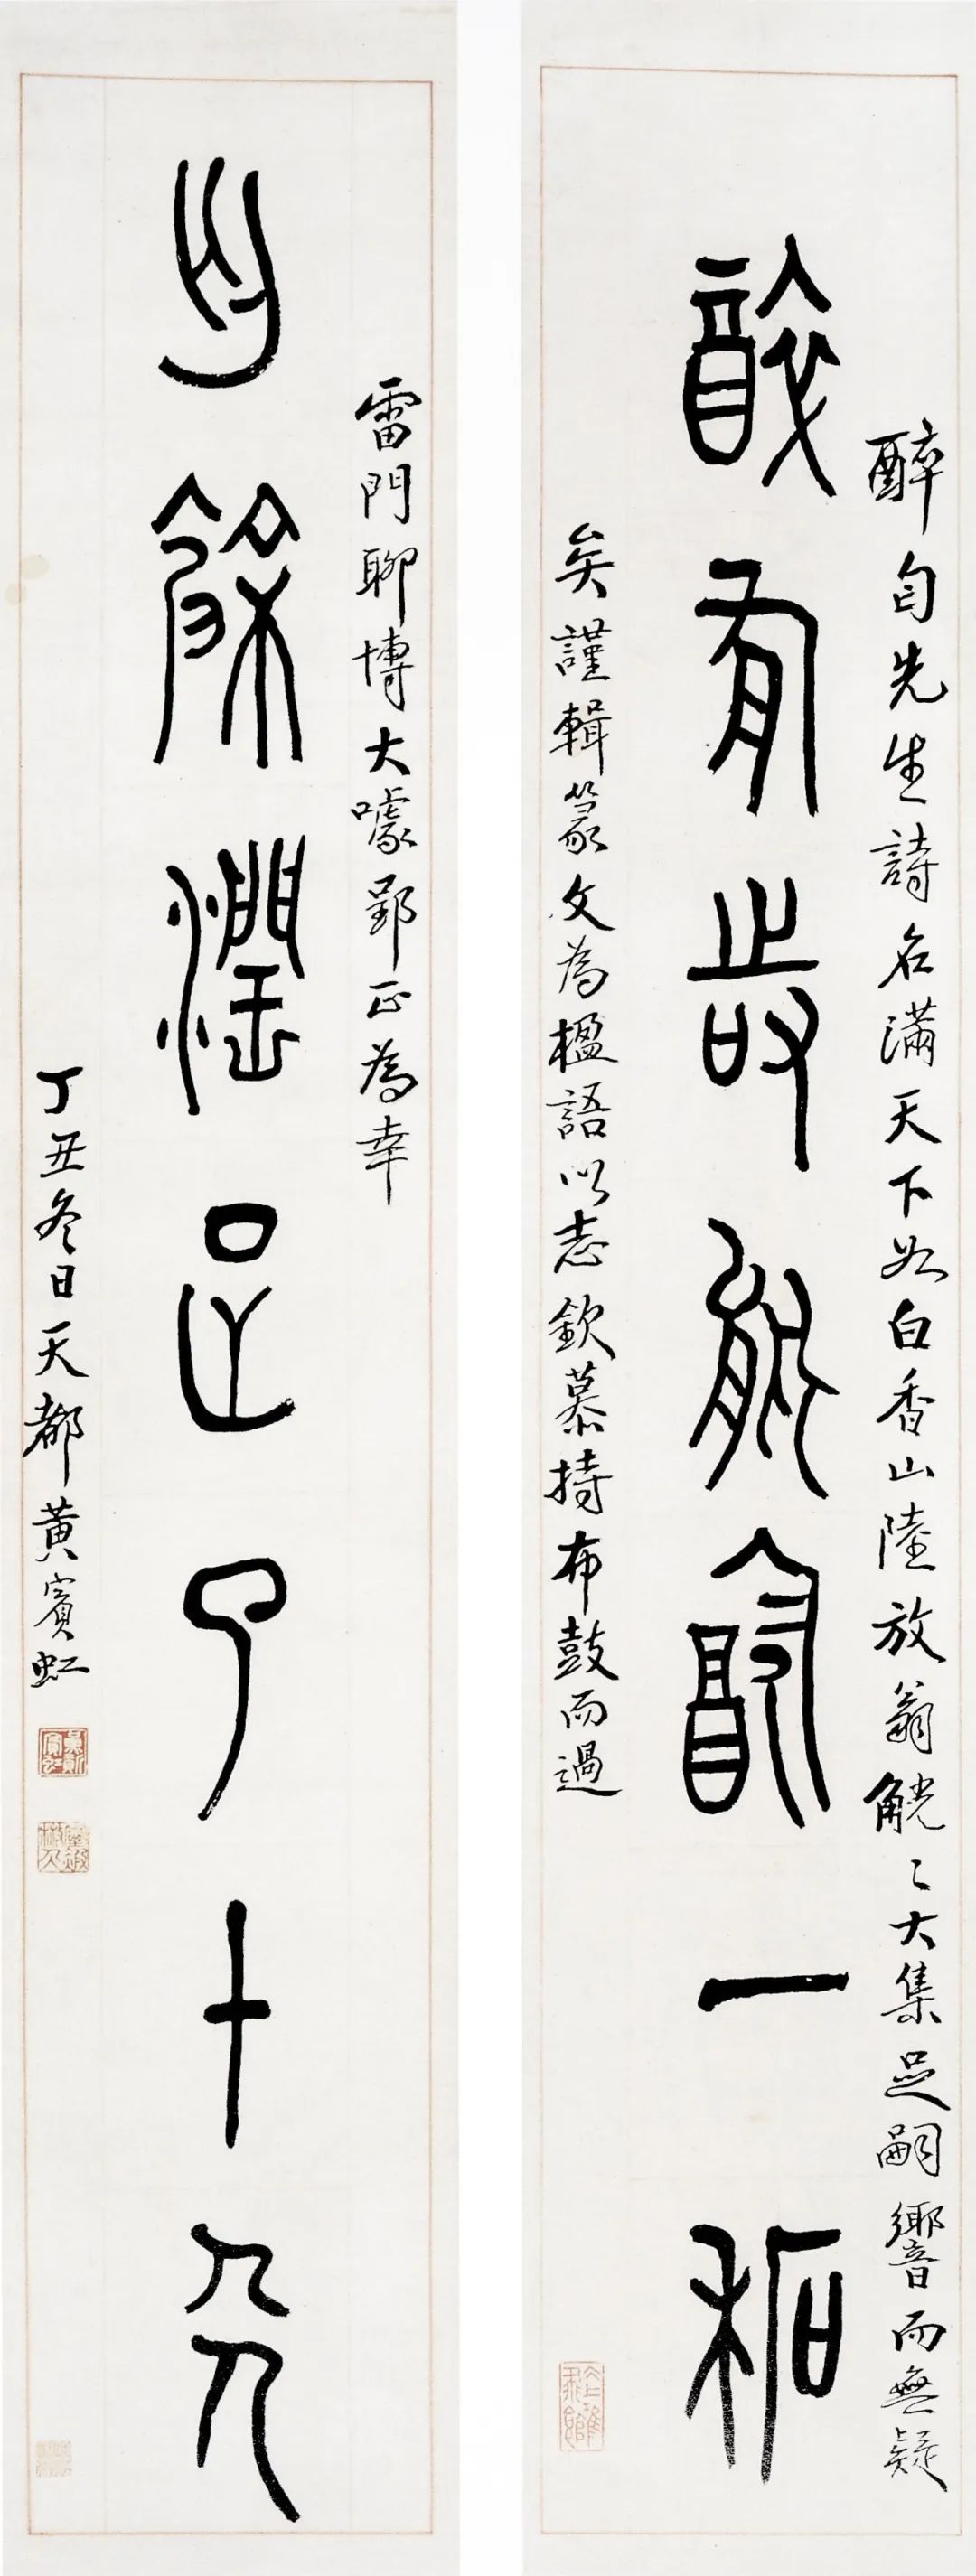 醉先生詩名滿天下如白香山陸放翁觥々大集足嗣響而無疑
有能一
矣謹輯篆文為楹語以志欽慕持布鼓而過
雷門聊博大噱郢正為幸
餘潤足了十
丁丑冬日天都黃賓虹